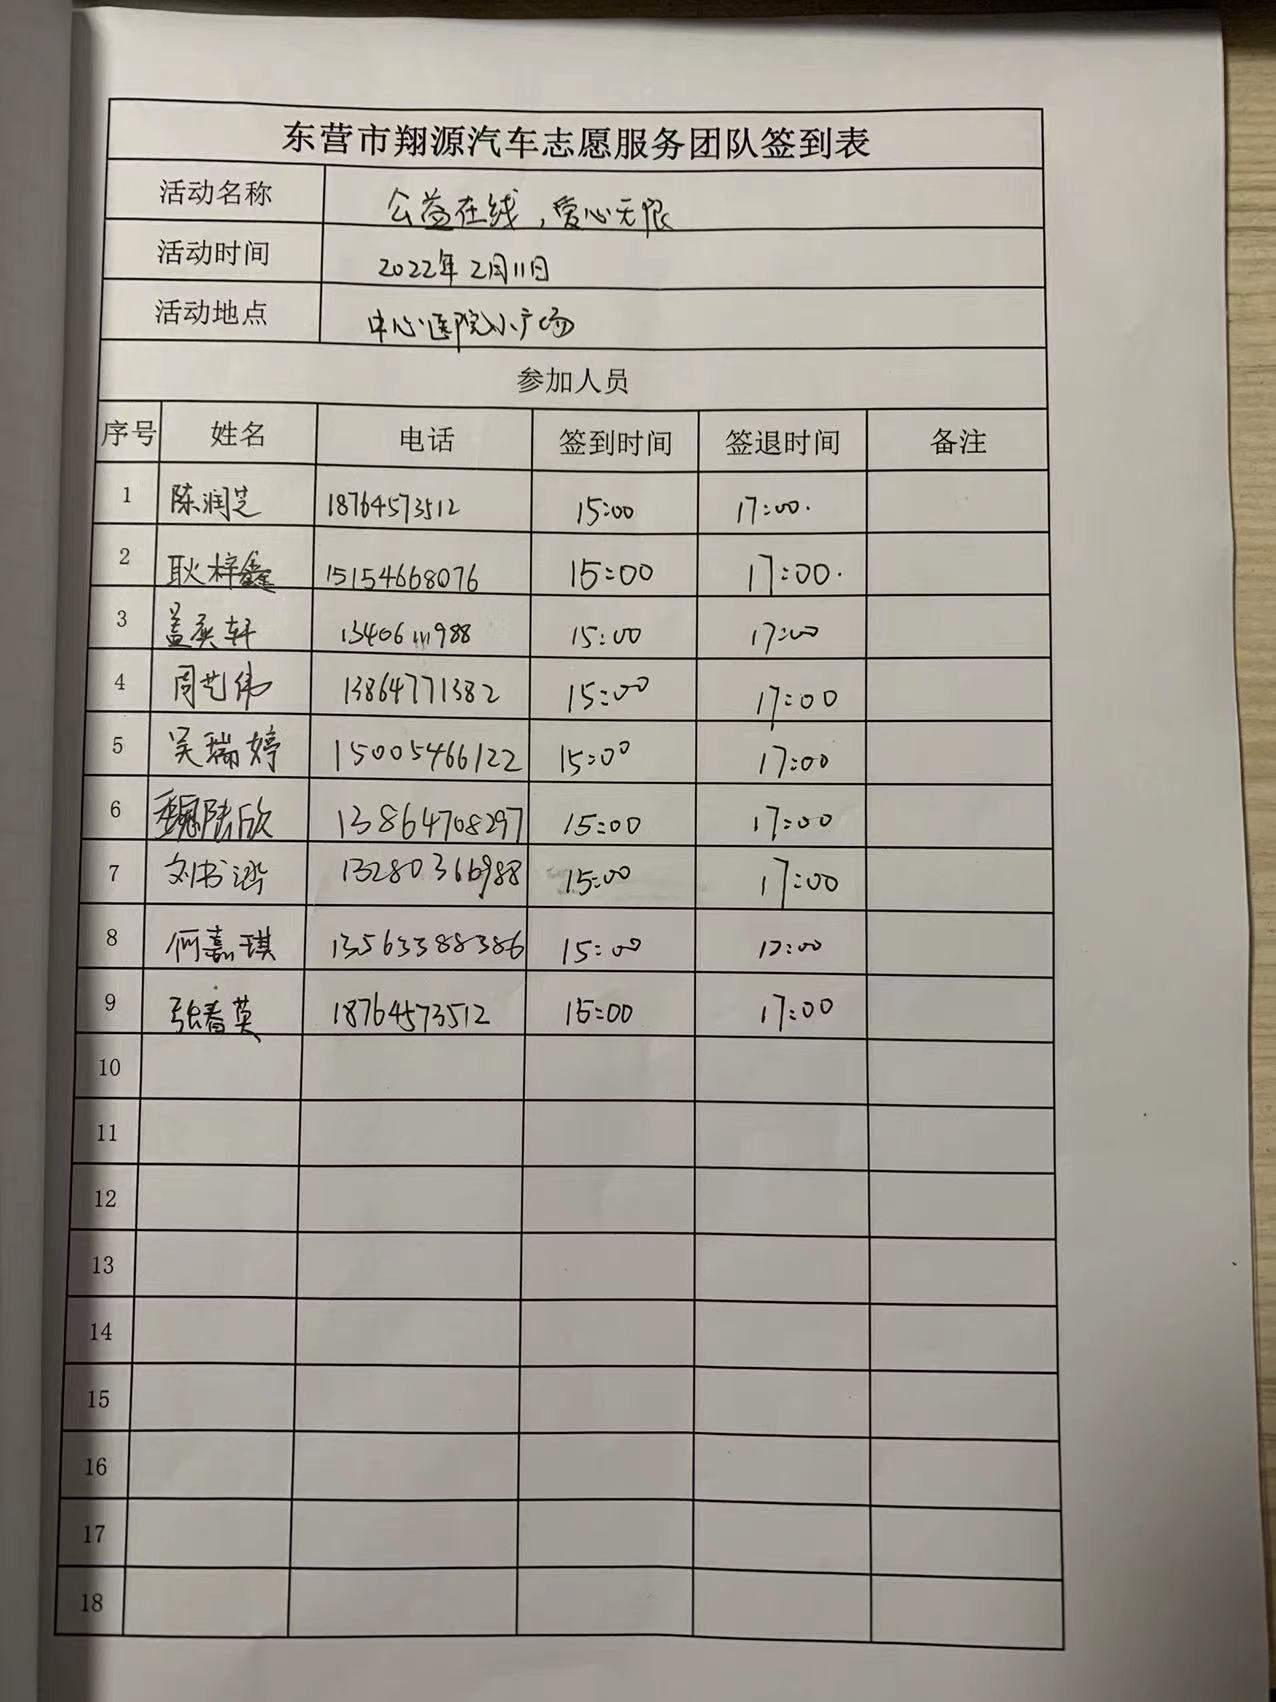 东营市翔源汽车志愿服务团队签到表
活动名称 公益在线，爱心无限
活动时间 2022年2月11日
活动地点 中心医院小广场
参加人员
序号 姓名 电话 签到时间 签退时间 备注
1 陈润芝 18764573512 15:00 17:00.
2 耿梓鑫 15154668076 15:00 17:00.
3 盖奕轩 13406111988 15:00 17:00
4 周艺伟 13864771382 15:00 17:00
5 吴瑞婷 15005466122 15:00 17:00
6 魏陆欣 13864708297 15:00 17:00
7 刘书涵 13280366988 15:00 17:00
8 何嘉琪 13563388386 15:00 17:00
9 张春英 18764573512 15:00 17:00
10
11
12
13
14
15
16
17
18